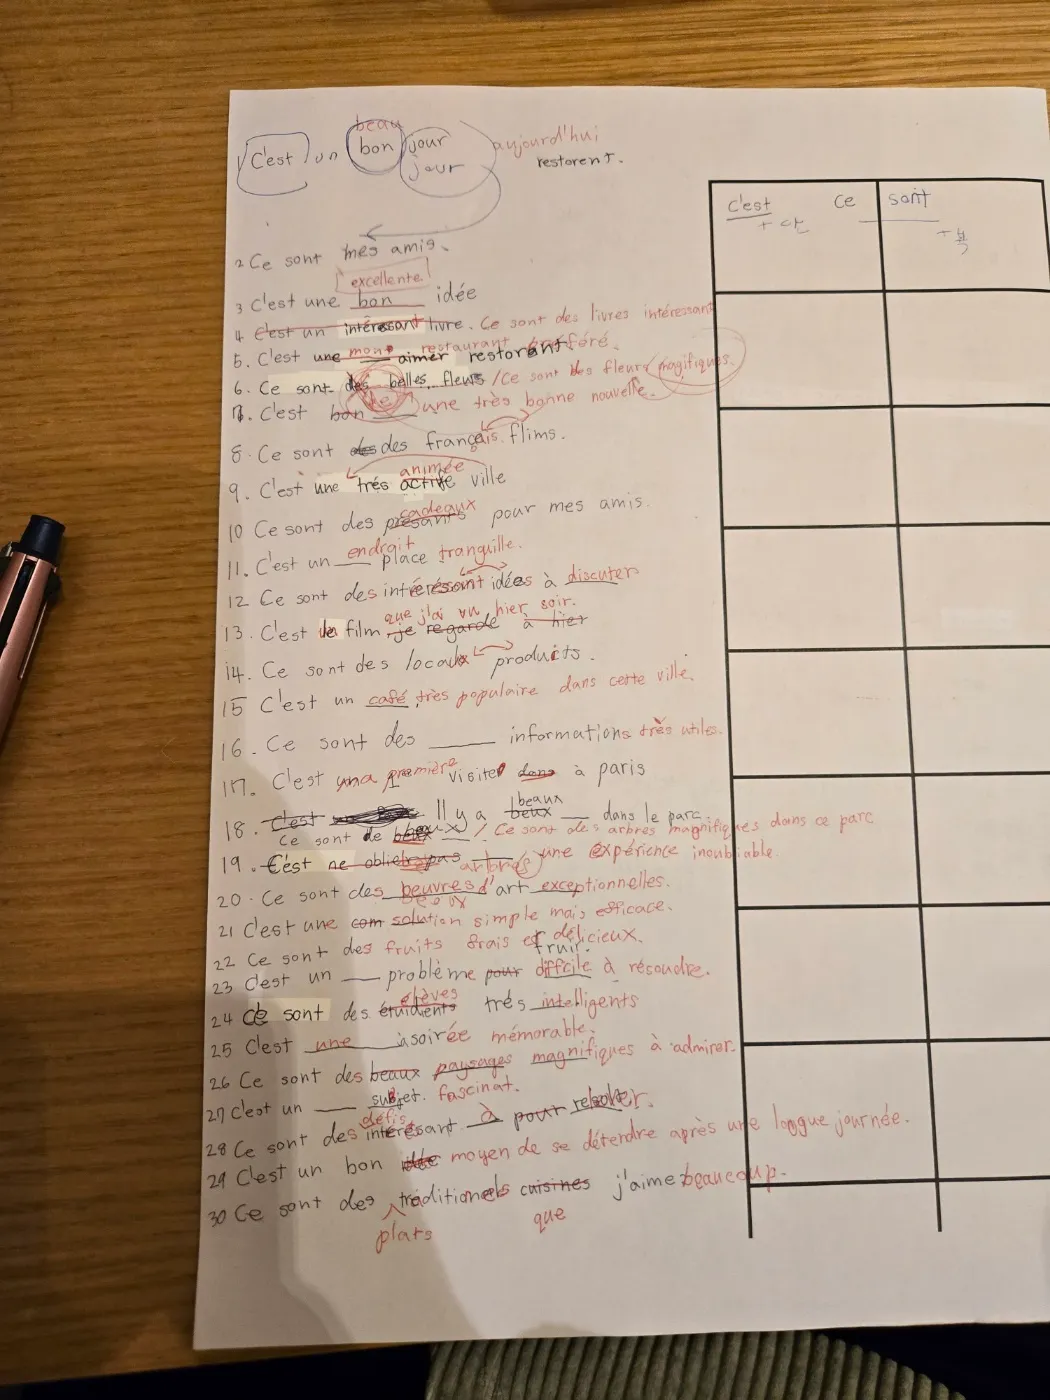 beau
C'est un bon jour aujourd'hui
jour restorent.
c'est ce sont
+ 단 + 복
2 Ce sont mes amis.
excellente
3 C'est une bon idée
4. C'est un intéressant livre. Ce sont des livres intéressant
5. C'est une mon aimer restorant restaurant préféré.
6. Ce sont des belles fleurs / Ce sont des fleurs magifiques.
7. C'est bon une très bonne nouvelle.
8. Ce sont des des français flims.
animée
9. C'est une trés active ville
cadeaux
10 Ce sont des présants pour mes amis.
endrait
11. C'est un place tranguille.
12 Ce sont des intéréssant idées à discuter
que j'ai vu hier soir.
13. C'est le film je regarde à hier
14. Ce sont des locaux products.
15 C'est un café très populaire dans cette ville.
16. Ce sont des informations très utiles.
17. C'est una première visite dans à paris
beaux
18. C'est Il y a beux dans le parc.
Ce sont de beaux / Ce sont des arbres magnifiques dans ce parc
19. C'est ne oblier pas arbres une expérience inoubliable.
20. Ce sont des beuvres d'art exceptionnelles.
21 C'est une com solution simple mais efficace.
22 Ce sont des fruits frais et délicieux.
fruir.
23 C'est un problème pour difficile à résoudre.
elèves
24 Ce sont des étuidients trés intelligents
25 C'est une soirée mémorable.
26 Ce sont des beaux paysages magnifiques à admirer.
27 C'est un sujet. fascinat.
défis
28 Ce sont des interesant à pour resolver.
29 C'est un bon idée moyen de se déterdre après une longue journée.
30 Ce sont des traditionels cuisines j'aime beaucoup.
plats que